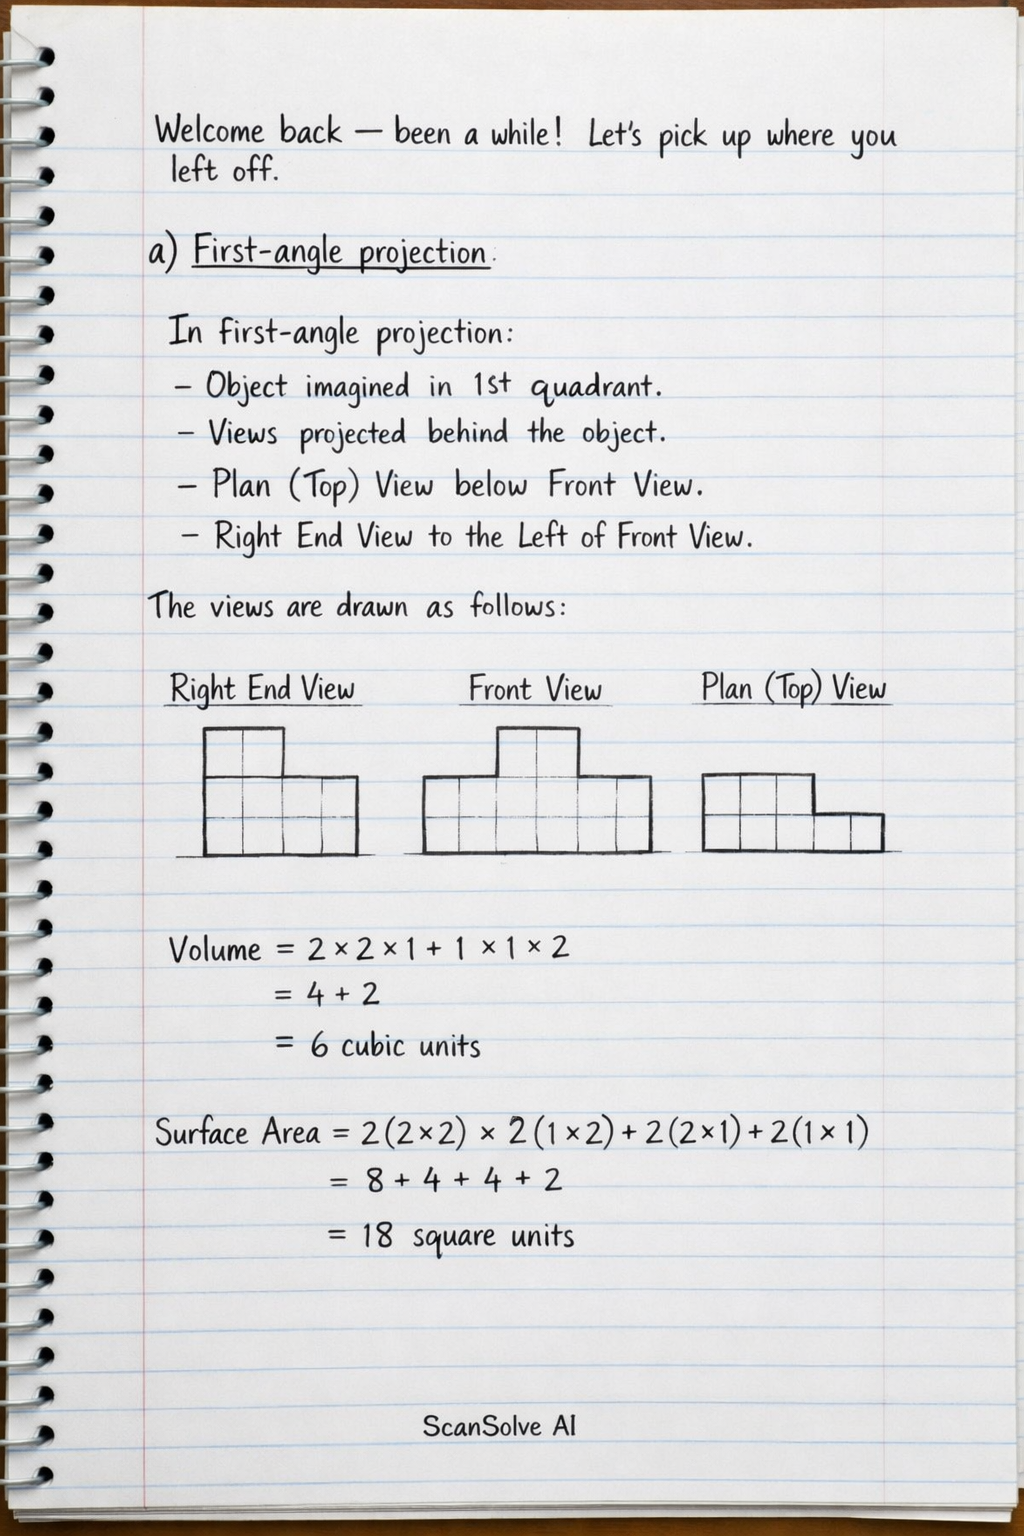 Welcome back — been a while! Let's pick up where you
left off.
a) First-angle projection.
In first-angle projection:
– Object imagined in 1st quadrant.
– Views projected behind the object.
– Plan (Top) View below Front View.
– Right End View to the Left of Front View.
The views are drawn as follows:
Right End View Front View Plan (Top) View
Volume = 2 × 2 × 1 + 1 × 1 × 2
= 4 + 2
= 6 cubic units
Surface Area = 2(2×2) × 2(1×2) + 2(2×1) + 2(1×1)
= 8 + 4 + 4 + 2
= 18 square units
ScanSolve AI